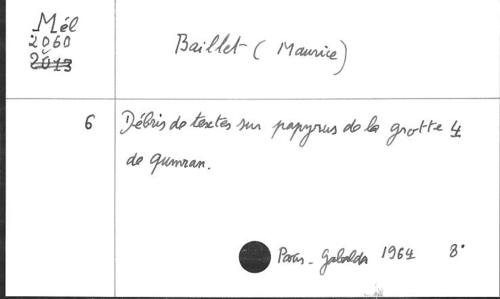 Mél
2060
2013
Baillet (Maurice)
6
Débris de textes sur papyrus de la grotte 4
de qumran.
Paris - Gabalda 1964 8°